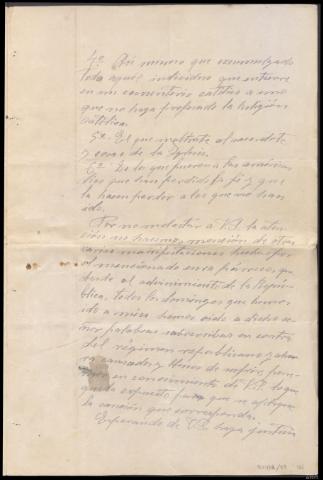 4º Aún menos que excomulgado
todo aquel individuo que entierre
en un cementerio católico a uno
que no haya profesado la religión
católica.
5º El que maltrate al sacerdote
y cosas de la Iglesia.
6º Es lo que pueden a las
que han perdido la fe y que
la hacen perder a los que no han
sido.
Por no molestar a V.I. la aten-
ción no hacemos mención de otras
varias manifestaciones hechas por
el mencionado cura párroco, que
desde el advenimiento de la Repú-
blica, todos los domingos que hemos
ido a misa hemos oído a dicho se-
ñor palabras subversivas en contra
del régimen republicano y ahora
ya cansados y llenos de sufrir, pone-
mos en conocimiento de V.I. lo que
queda expuesto para que se aplique
la sanción que corresponda.
Esperando de V.I. haga justicia